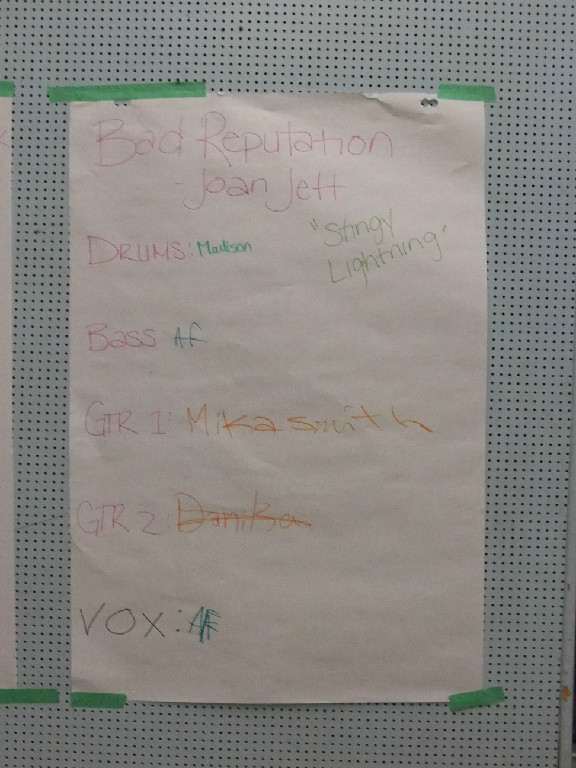 Bad Reputation
-Joan Jett
DRUMS: Madison
"Stingy
Lightning"
Bass AF
GTR 1: Mika smith
GTR 2: Danika
VOX: AF